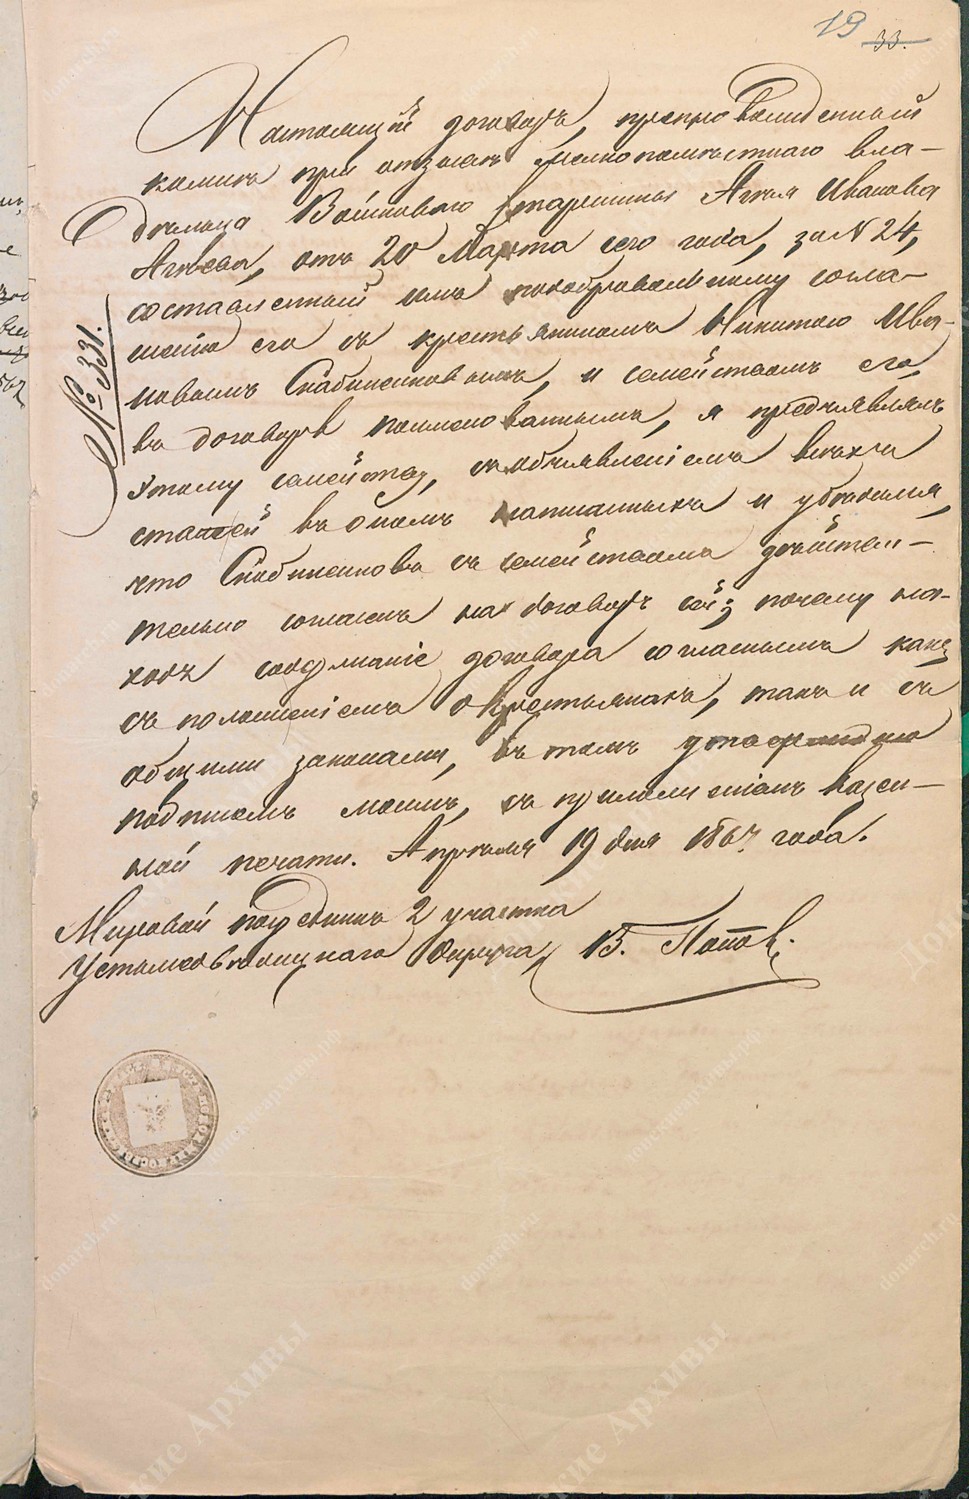 19 33.
Настоящій договоръ, препровожденный
комнѣ при отзывѣ мелкопомѣстнаго вла-
дѣльца Войсковаго старшины Агѣя Иванова
Агѣева, отъ 20 Марта сего года, за № 24,
составленный имъ подобровольному согла-
шенію его съ крестьяниномъ Никитою Ива-
новымъ и семействомъ его,
въ договорѣ поименованнымъ, я предъявлялъ
этому семейству, съ объявленіемъ всѣхъ
статей въ ономъ написанныхъ и убѣдился,
что съ семействомъ дѣйстви-
тельно согласенъ на договоръ сей; почему на-
ходя содержаніе договора согласнымъ какъ
съ положеніемъ о крестьянахъ, такъ и съ
общими законами, въ томъ удостовѣряю
подписомъ моимъ, съ приложеніемъ казен-
ной печати. Апрѣля 19 дня 1867 года.
Мировой посредникъ 2 участка
Устьмедвѣдицкаго Округа, В. Попов.
№ 331.